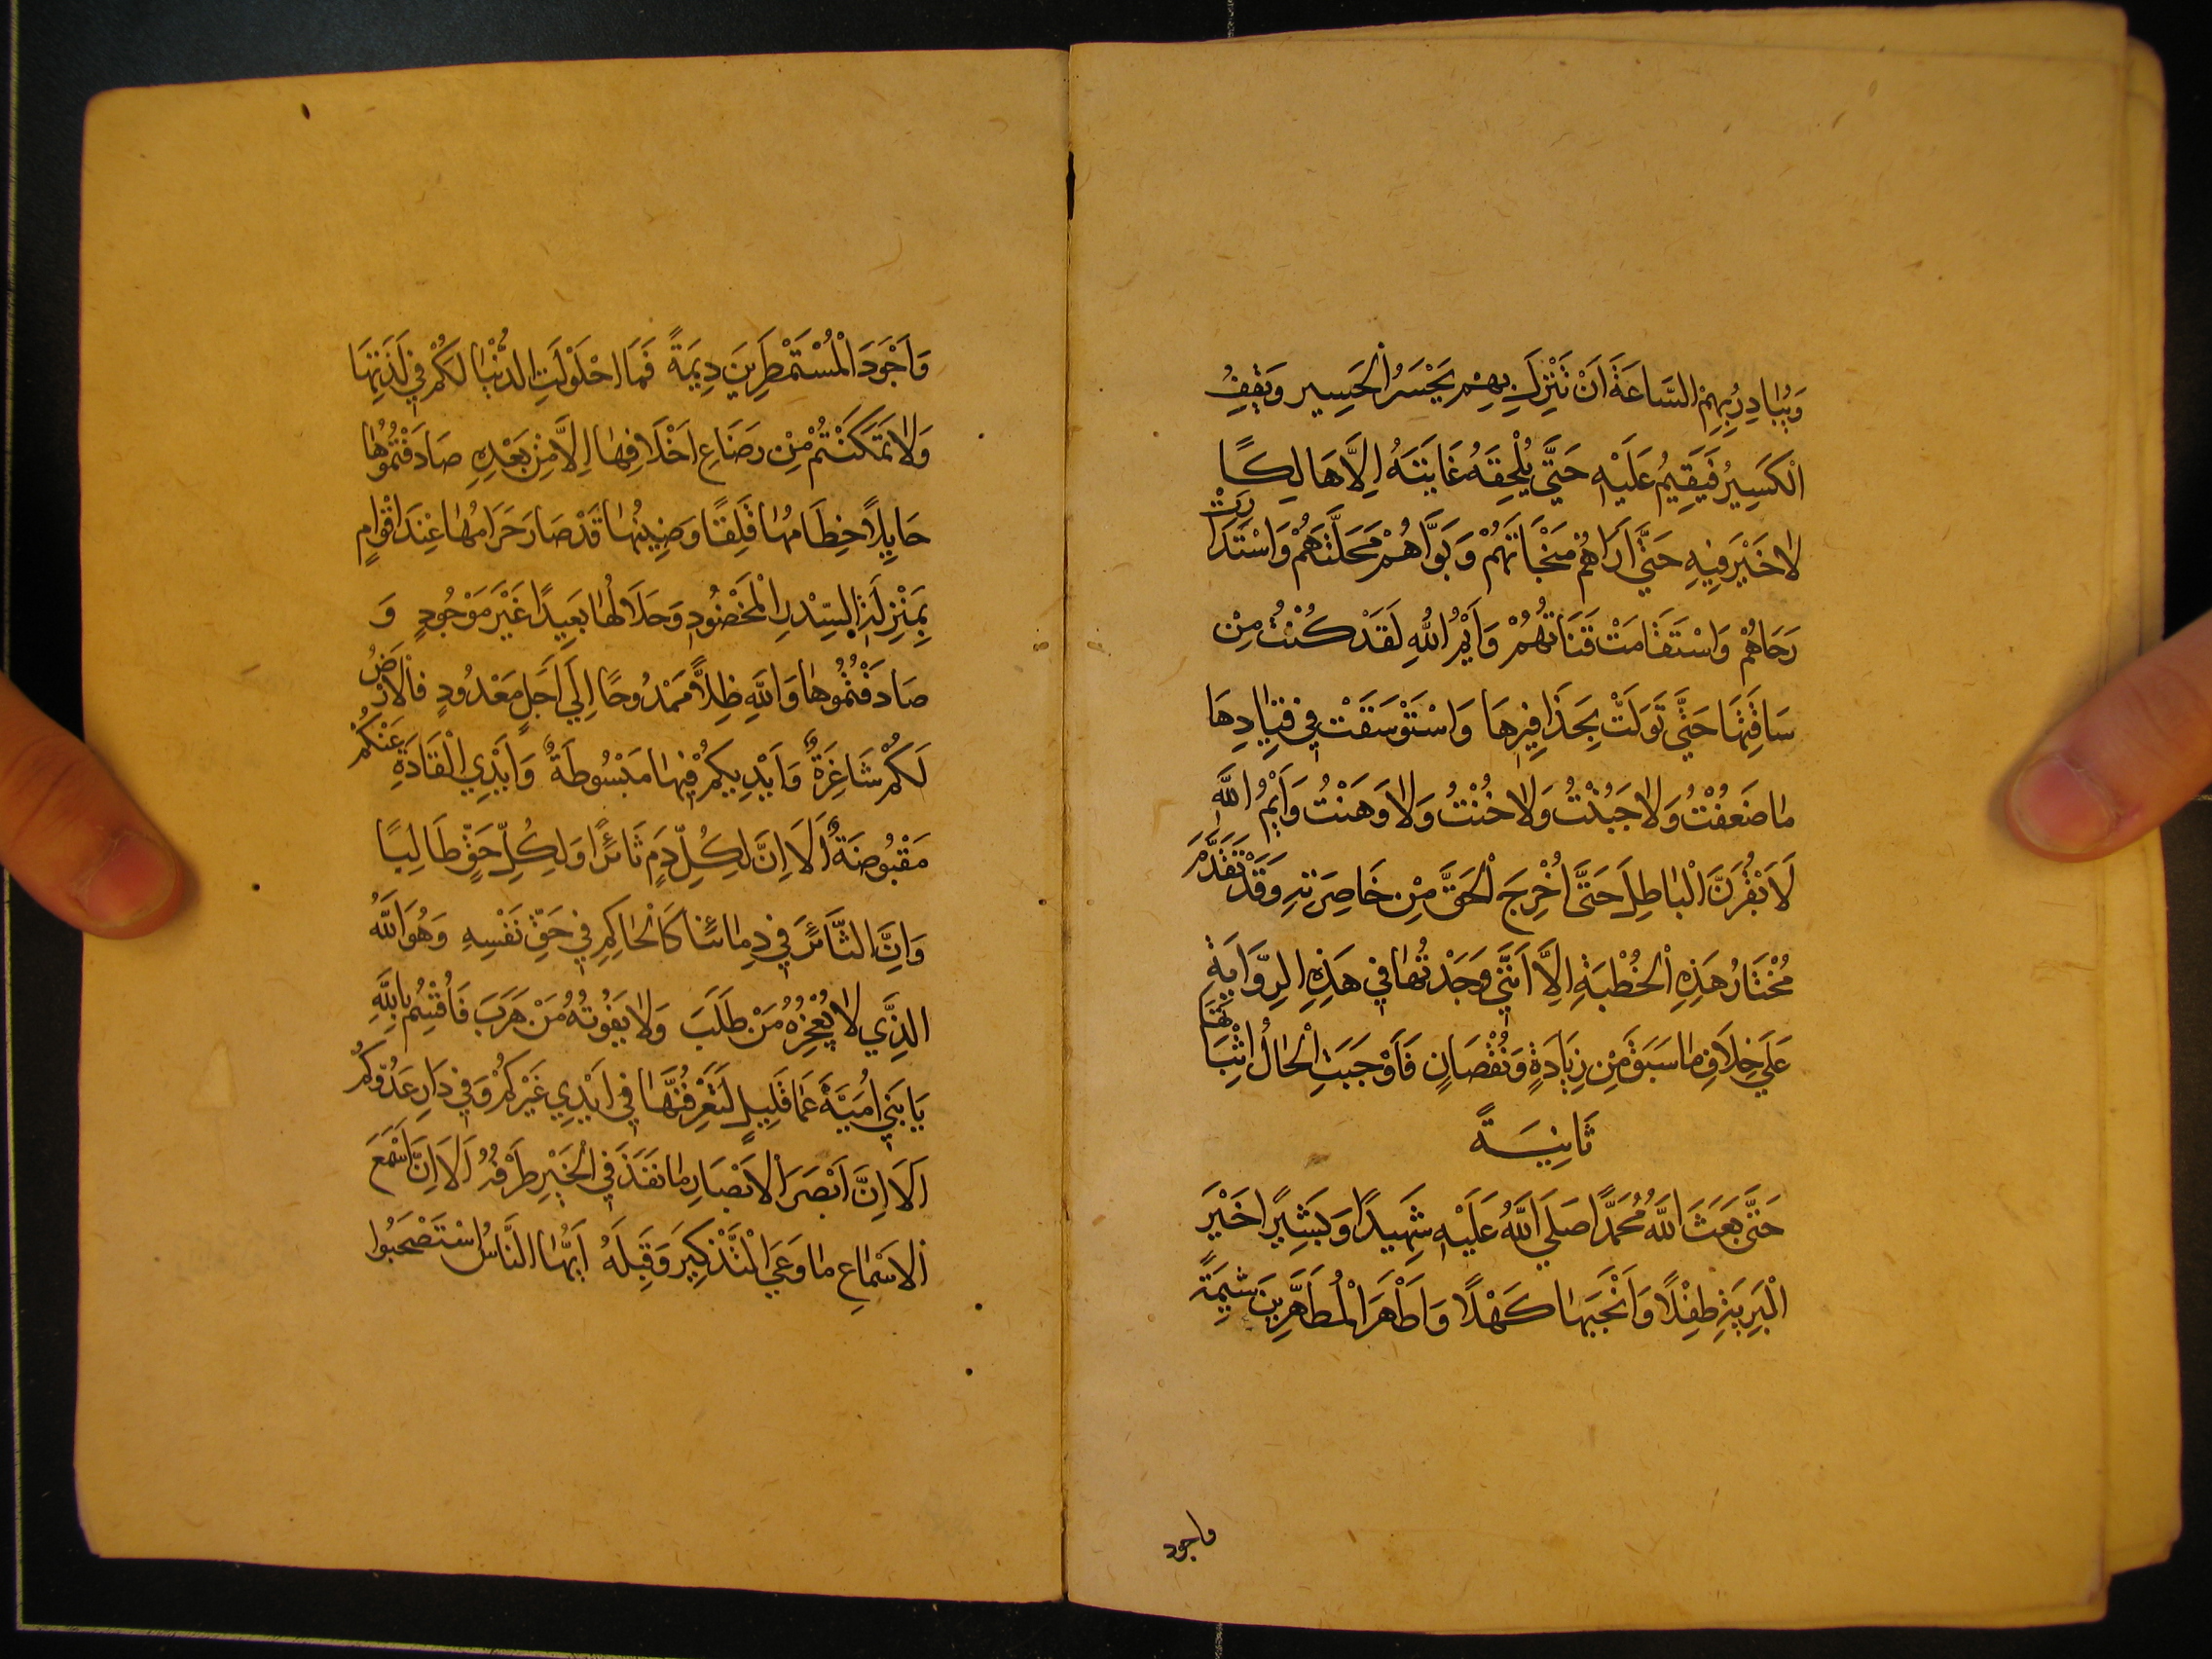 وَيُبَادِرُ بِهِمُ السَّاعَةَ اَنْ تَنْزِلَ بِهِمْ يَحْسَرُ الْحَسِيرُ وَيَقِفُ
الْكَسِيرُ فَيُقِيمُ عَلَيْهِ حَتَّى يُلْحِقَهُ غَايَتَهُ اِلَّا هَالِكًا
لَا خَيْرَ فِيهِ حَتَّى اَرَاهُمْ مَنْجَاتَهُمْ وَبَوَّاَهُمْ مَحَلَّتَهُمْ وَاسْتَدَارَتْ
رَحَاهُمْ وَاسْتَقَامَتْ قَنَاتُهُمْ وَاَيْمُ اللهِ لَقَدْ كُنْتُ مِنْ
سَاقَتِهَا حَتَّى تَوَلَّتْ بِحَذَافِيرِهَا وَاسْتَوْسَقَتْ فِي قِيَادِهَا
مَا ضَعُفْتُ وَلَا جَبُنْتُ وَلَا خُنْتُ وَلَا وَهَنْتُ وَاَيْمُ اللهِ
لَاَبْقُرَنَّ الْبَاطِلَ حَتَّى اُخْرِجَ الْحَقَّ مِنْ خَاصِرَتِهِ وَقَدْ تَقَدَّمَ
مُخْتَارُ هَذِهِ الْخُطْبَةِ اِلَّا اَنَّنِي وَجَدْتُهَا فِي هَذِهِ الرِّوَايَةِ
عَلَى خِلَافِ مَا سَبَقَ مِنْ زِيَادَةٍ وَنُقْصَانٍ فَاَوْجَبَتِ الْحَالُ اِثْبَاتَهَا
ثَانِيَةً
حَتَّى بَعَثَ اللهُ مُحَمَّدًا صَلَّى اللهُ عَلَيْهِ شَهِيدًا وَبَشِيرًا خَيْرَ
الْبَرِيَّةِ طِفْلًا وَاَنْجَبَهَا كَهْلًا وَاَطْهَرَ الْمُطَهَّرِينَ شِيمَةً
واجود
وَاَجْوَدَ الْمُسْتَمْطَرِينَ دِيمَةً فَمَا احْلَوْلَتِ الدُّنْيَا لَكُمْ فِي لَذَّتِهَا
وَلَا تَمَكَّنْتُمْ مِنْ رَضَاعِ اَخْلَافِهَا اِلَّا مِنْ بَعْدِهِ صَادَفْتُمُوهَا
جَايِلًا خِطَامُهَا قَلِقًا وَضِينُهَا قَدْ صَارَ حَرَامُهَا عِنْدَ اَقْوَامٍ
بِمَنْزِلَةِ السِّدْرِ الْمَخْضُودِ وَحَلَالُهَا بَعِيدًا غَيْرَ مَوْجُودٍ وَ
صَادَفْتُمُوهَا وَاللهِ ظِلًّا مَمْدُودًا اِلَى اَجَلٍ مَعْدُودٍ فَالْاَرْضُ
لَكُمْ شَاغِرَةٌ وَاَيْدِيكُمْ فِيهَا مَبْسُوطَةٌ وَاَيْدِي الْقَادَةِ عَنْكُمْ
مَقْبُوضَةٌ اَلَا اِنَّ لِكُلِّ دَمٍ ثَائِرًا وَلِكُلِّ حَقٍّ طَالِبًا
وَاِنَّ الثَّائِرَ فِي دِمَائِنَا كَالْحَاكِمِ فِي حَقِّ نَفْسِهِ وَهُوَ اللهُ
الَّذِي لَا يُعْجِزُهُ مَنْ طَلَبَ وَلَا يَفُوتُهُ مَنْ هَرَبَ فَاُقْسِمُ بِاللهِ
يَا بَنِي اُمَيَّةَ عَمَّا قَلِيلٍ لَتَعْرِفُنَّهَا فِي اَيْدِي غَيْرِكُمْ وَفِي دَارِ عَدُوِّكُمْ
اَلَا اِنَّ اَبْصَرَ الْاَبْصَارِ مَا نَفَذَ فِي الْخَيْرِ طَرْفُهُ اَلَا اِنَّ اَسْمَعَ
الْاَسْمَاعِ مَا وَعَى التَّذْكِيرَ وَقَبِلَهُ اَيُّهَا النَّاسُ اسْتَصْبَحُوا